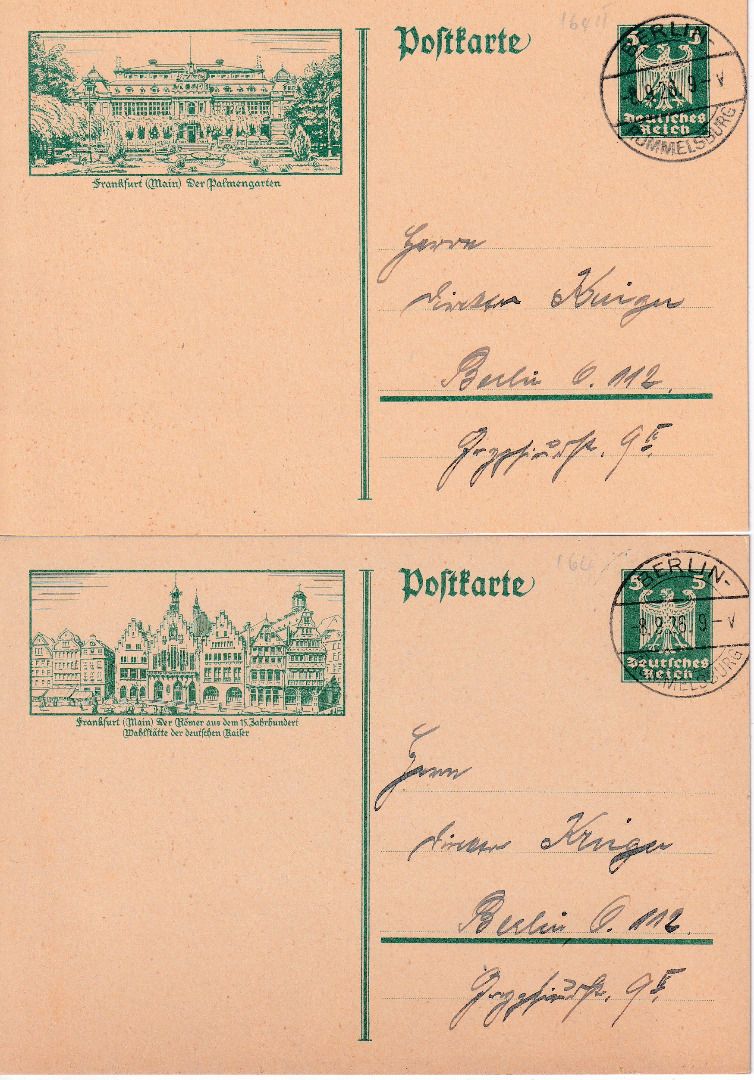 164 II
Postkarte
5 5
Deutsches
Reich
BERLIN-
8.9.26. 9-V
RUMMELSBURG
Frankfurt (Main) Der Palmengarten
Herrn
Direktor Krüger
Berlin O. 112.
9 II.
164
Postkarte
5 5
Deutsches
Reich
BERLIN-
8.9.26. 9-V
RUMMELSBURG
Frankfurt (Main) Der Römer aus dem 15. Jahrhundert
Wahlstätte der deutschen Kaiser
Herrn
Direktor Krüger
Berlin, O. 112.
9 II.